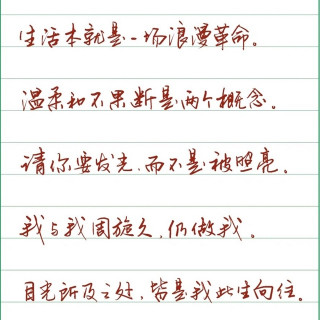 生活本就是一场浪漫革命。
温柔和不果断是两个概念。
请你要发光,而不是被照亮。
我与我周旋久,仍做我。
目光所及之处,皆是我此生向往。